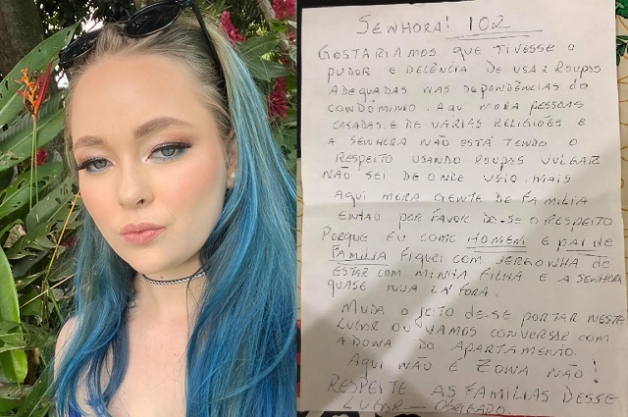 SENHORA! 102
GOSTARIAMOS QUE TIVESSE O
PUDOR E DECÊNCIA DE USAR ROUPAS
ADEQUADAS NAS DEPENDÊNCIAS DO
CONDÔMINIO. AQUI MORA PESSOAS
CASADAS E DE VÁRIAS RELIGIÕES E
A SENHORA NÃO ESTÁ TENDO O
RESPEITO USANDO ROUPAS VULGAR
NÃO SEI DE ONDE VEIO, MAIS
AQUI MORA GENTE DE FAMILIA
ENTÃO POR FAVOR DE-SE O RESPEITO
PORQUE EU COMO HOMEM E PAI DE
FAMÍLIA FIQUEI COM VERGONHA DE
ESTAR COM MINHA FILHA E A SENHORA
QUASE NUA LÁ FORA.
MUDA O JEITO DE SE PORTAR NESTE
LUGAR OU VAMOS CONVERSAR COM
A DONA DO APARTAMENTO.
AQUI NÃO É ZONA NÃO!
RESPEITE AS FAMILIAS DESSE
LUGAR - OBRIGADO